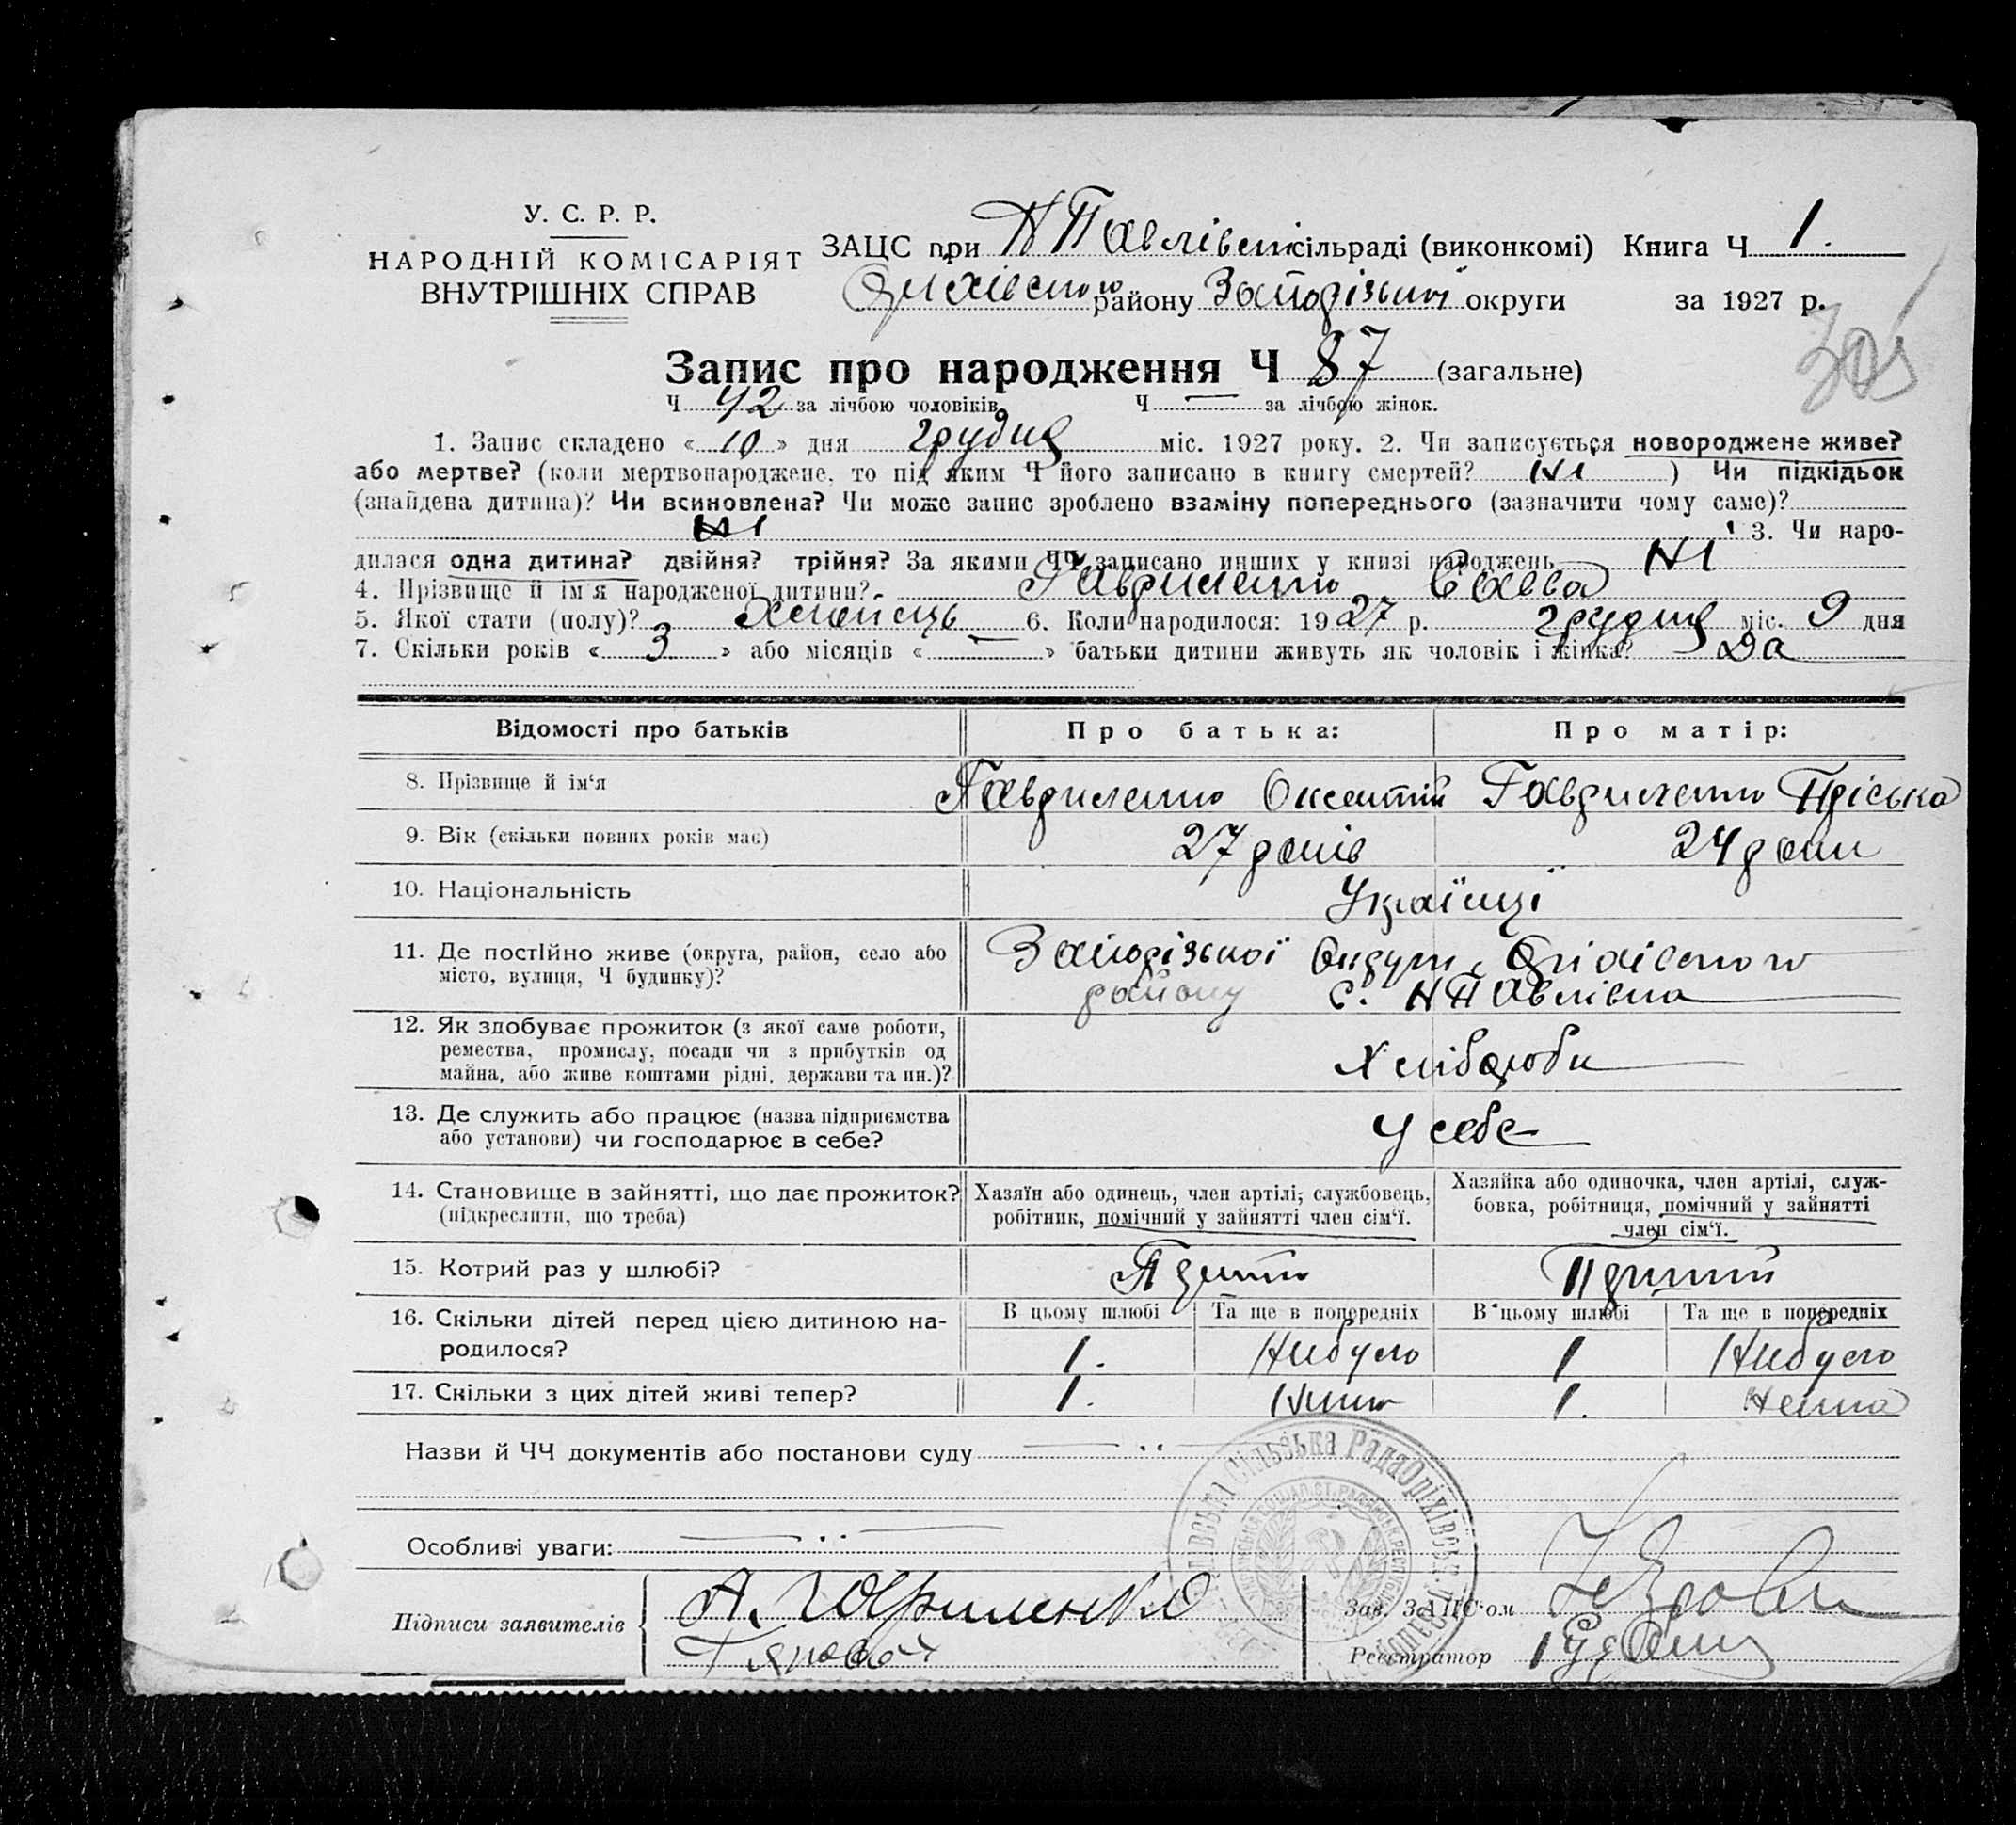 У. С. Р. Р.
НАРОДНІЙ КОМІСАРІЯТ
ВНУТРІШНІХ СПРАВ
ЗАЦС при НПавлівськ сільраді (виконкомі) Книга Ч 1.
Оріхівського району Запорізької округи за 1927 р.
Запис про народження Ч 87 (загальне)
Ч 42 за лічбою чоловіків Ч — за лічбою жінок.
1. Запис складено « 10 » дня грудня міс. 1927 року. 2. Чи записується новороджене живе?
або мертве? (коли мертвонароджене, то під яким Ч його записано в книгу смертей? Ні ) Чи підкідьок
(знайдена дитина)? Чи всиновлена? Чи може запис зроблено взаміну попереднього (зазначити чому саме)?
Ні 3. Чи наро-
дилася одна дитина? двійня? трійня? За якими ЧЧ записано инших у книзі народжень Ні
4. Прізвище й ім'я народженої дитини? Гавриленко Савва
5. Якої стати (полу)? Хлопець 6. Коли народилося: 1927 р. грудня міс. 9 дня
7. Скільки років « 3 » або місяців « — » батьки дитини живуть як чоловік і жінка? Да
Відомості про батьків Про батька: Про матір:
8. Прізвище й ім'я Гавриленко Оксентій Гавриленко Пріська
9. Вік (скільки повних років має) 27 років 24 роки
10. Національність Українці
11. Де постійно живе (округа, район, село або Запорізької Округи, Оріхівського
місто, вулиця, Ч будинку)? району с. НПавлівка
12. Як здобуває прожиток (з якої саме роботи,
ремества, промислу, посади чи з прибутків од Хлібороби
майна, або живе коштами рідні, держави та ин.)?
13. Де служить або працює (назва підприємства
або установи) чи господарює в себе? У себе
14. Становище в зайнятті, що дає прожиток? Хазяїн або одинець, член артілі, службовець, Хазяйка або одиночка, член артілі, служ-
(підкреслити, що треба) робітник, помічний у зайнятті член сім'ї. бовка, робітниця, помічний у зайнятті
член сім'ї.
15. Котрий раз у шлюбі?
16. Скільки дітей перед цією дитиною на- В цьому шлюбі Та ще в попередніх В цьому шлюбі Та ще в попередніх
родилося? 1. Небуло 1 Небуло
17. Скільки з цих дітей живі тепер? 1. 1. Нема
Назви й ЧЧ документів або постанови суду
Особливі уваги:
Підписи заявителів А. Гавриленко
Зав. ЗАЦС'ом
Реєстратор
Сільська Рада Оріхівськ.